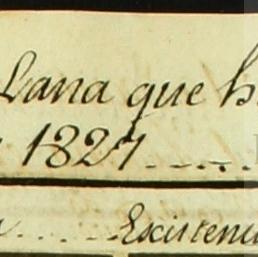 Lana que h
1827
Existenci